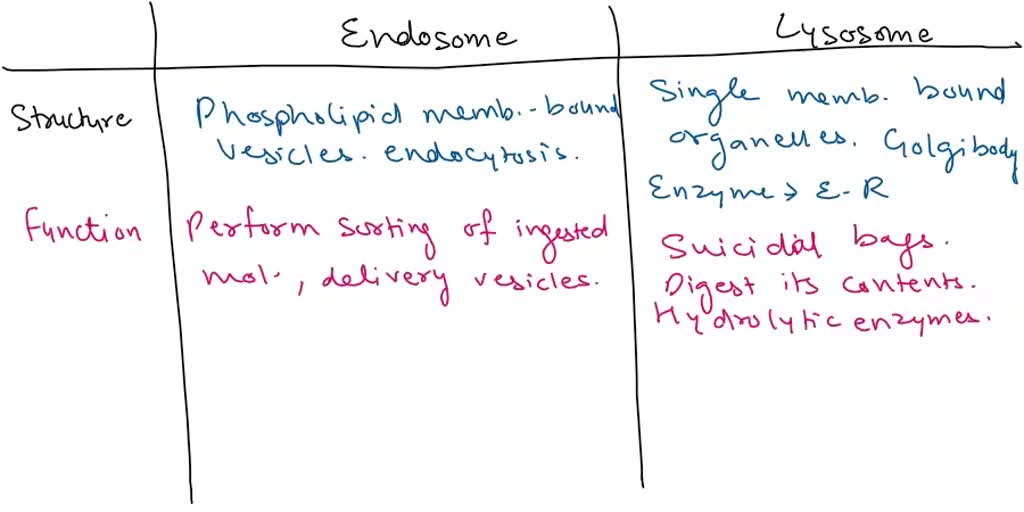 Endosome
Lysosome
Structure
Phospholipid memb.-bound
vesicles. endocytosis.
Single memb. bound
organelles. Golgibody
Enzyme → E-R
Function
Perform sorting of ingested
mol., delivery vesicles.
Suicidal bags.
Digest its contents.
Hydrolytic enzymes.